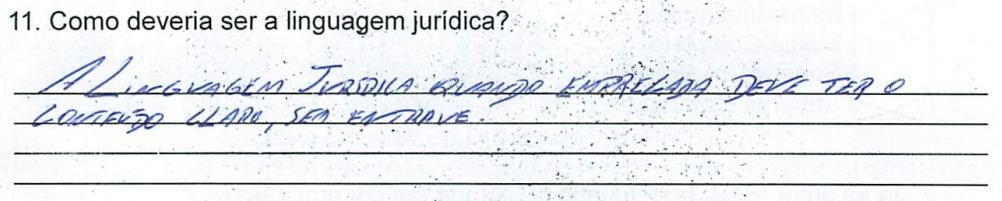 11. Como deveria ser a linguagem jurídica?
A LINGUAGEM JURIDICA QUANDO EMPREGADA DEVE TER O
CONTEÚDO CLARO, SEM ENTRAVE.